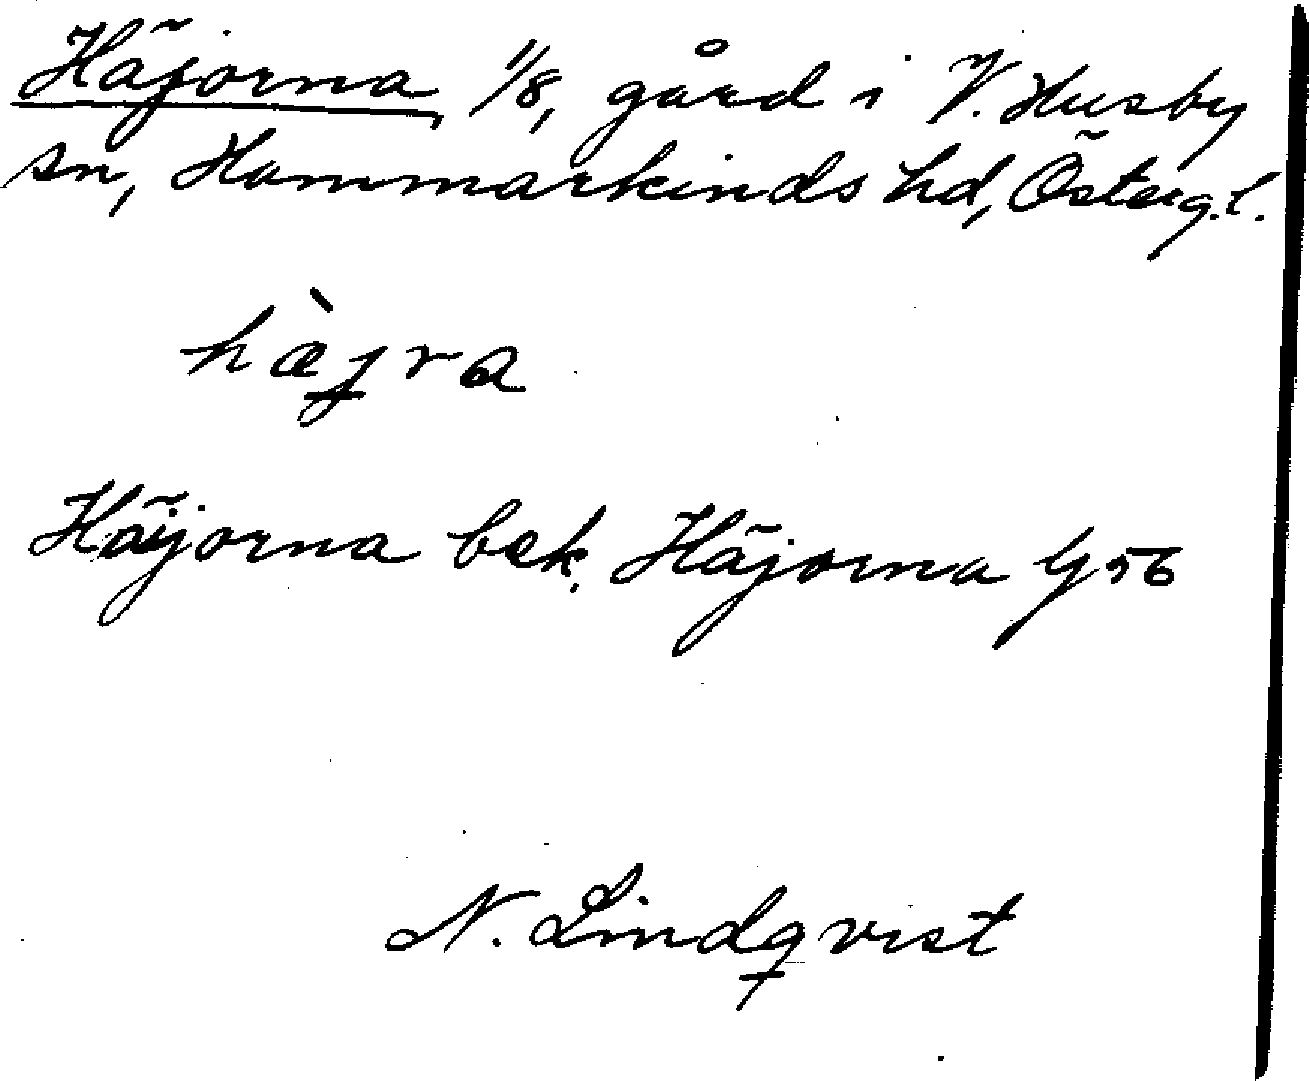 Häjorna, 1/8, gård i V. Husby
sn, Hammarkinds hd, Österg.l.
hæ̀jra
Häjorna bek. Häjorna G 56
N. Lindqvist